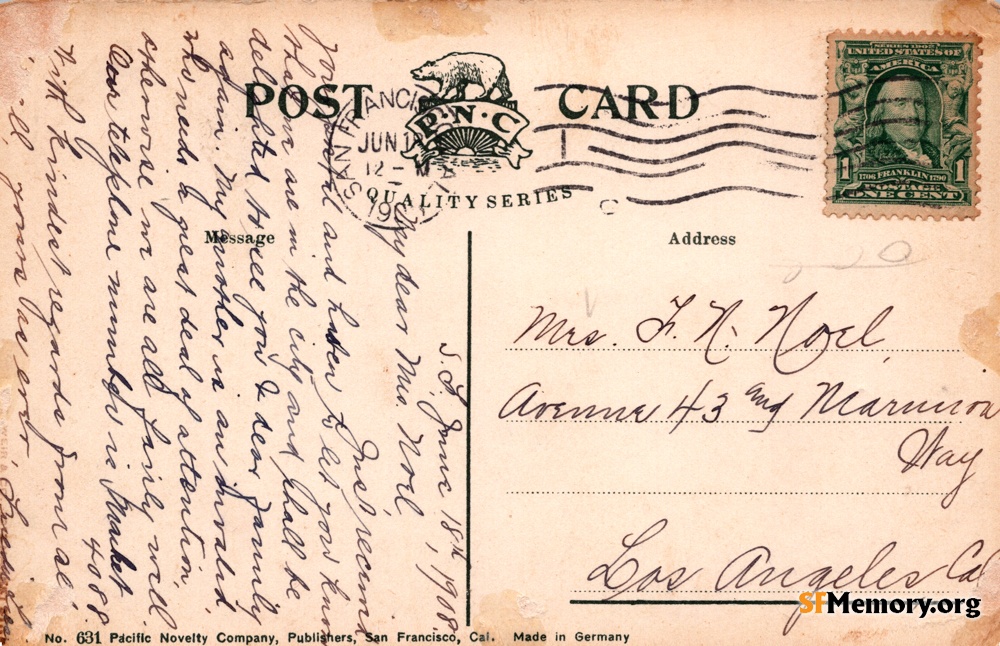 POST CARD
P.N.C
QUALITY SERIES
SAN FRANCISCO
JUN
12-M
190
SERIES 1902
UNITED STATES OF
AMERICA
1 1
1706 FRANKLIN 1790
POSTAGE
ONE CENT
Message
Address
S.F. June 18th, 1908.
My dear Mrs. Noel
Just received
your and hasten to let you know
that we are in the city and shall be
delighted to see you & dear family
again. My mother is an invalid
who needs a great deal of attention,
otherwise we are all fairly well.
Our telephone number is Market
4088
With kindest regards from all,
yours as ever,
Mrs. F. N. Noel
Avenue 43 and
Way
Los Angeles Cal
No. 631 Pacific Novelty Company, Publishers, San Francisco, Cal. Made in Germany
SFMemory.org